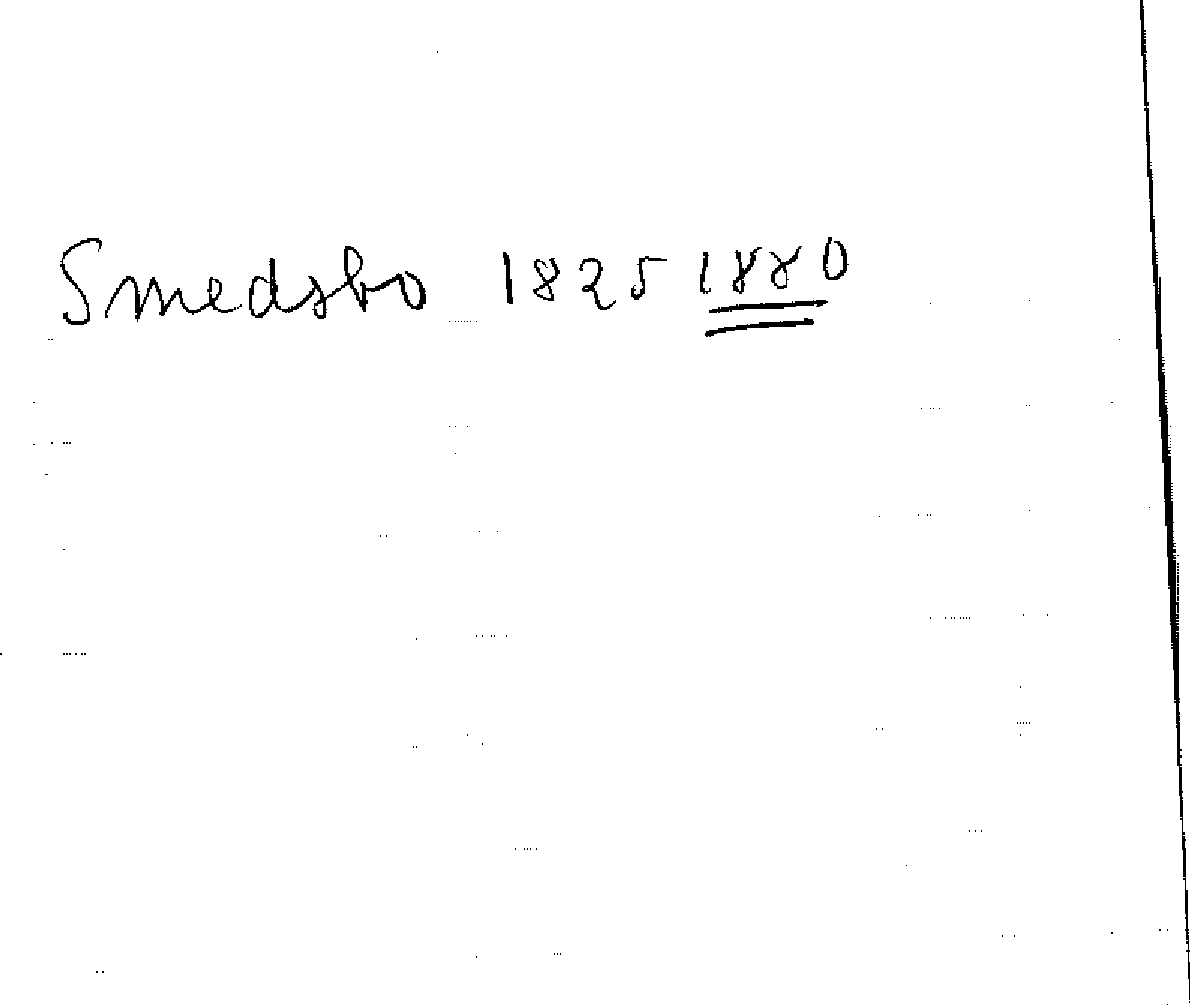 Smedsbo 1825 1880